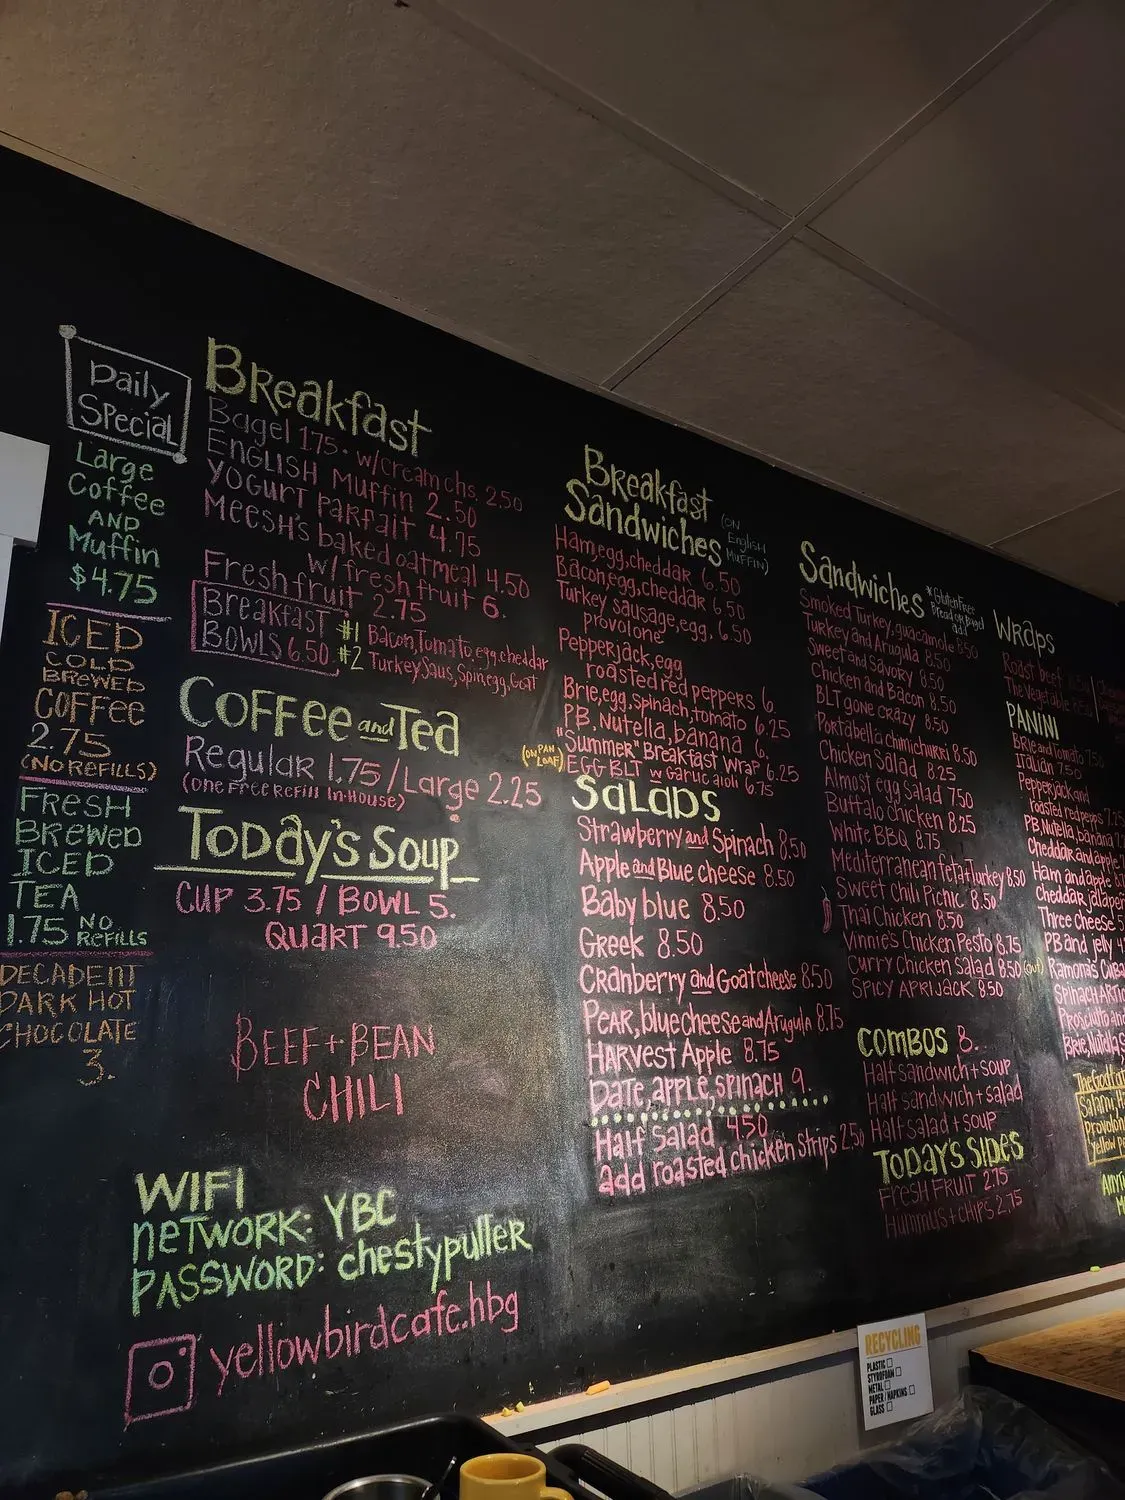 Daily
Special
Large
Coffee
AND
Muffin
$4.75
ICED
COLD
BREWED
COFFEE
2.75
(NO REFILLS)
FRESH
BREWED
ICED
TEA
1.75 NO
REFILLS
DECADENT
DARK HOT
CHOCOLATE
3.
Breakfast
Bagel 1.75 · w/cream chs. 2.50
ENGLISH Muffin 2.50
YOGURT PARFAIT 4.75
MEESH'S baked oatmeal 4.50
w/ fresh fruit 6.
Fresh fruit 2.75
Breakfast
BOWLS 6.50
#1 Bacon, Tomato, egg, cheddar
#2 Turkey Saus, Spin, egg, Goat
Coffee and Tea
Regular 1.75 / Large 2.25
(one FREE REFILL IN-HOUSE)
Today's Soup
CUP 3.75 / BOWL 5.
QUART 9.50
BEEF + BEAN
CHILI
WIFI
NETWORK: YBC
PASSWORD: chestypuller
yellowbirdcafe.hbg
Breakfast
Sandwiches
(ON
English
MUFFIN)
Ham, egg, cheddar 6.50
Bacon, egg, cheddar 6.50
Turkey sausage, egg, 6.50
provolone
Pepperjack, egg
roasted red peppers 6.
Brie, egg, spinach, tomato 6.25
PB, Nutella, banana 6.
"Summer" Breakfast Wrap 6.25
(ON PAN
LOAF)
EGG BLT w garlic aioli 6.75
SALADS
Strawberry and Spinach 8.50
Apple and Blue cheese 8.50
Baby blue 8.50
Greek 8.50
Cranberry and Goat cheese 8.50
PEAR, blue cheese and Arugula 8.75
HARVEST Apple 8.75
DATE, apple, SPINACH 9.
Half Salad 4.50
add roasted chicken strips 2.50
Sandwiches
*Gluten Free
Bread or Bagel
add
Smoked Turkey, guacamole 8.50
Turkey and Arugula 8.50
Sweet and Savory 8.50
Chicken and Bacon 8.50
BLT gone crazy 8.50
Portabella chimichurri 8.50
Chicken Salad 8.25
Almost egg Salad 7.50
Buffalo Chicken 8.25
White BBQ 8.75
Mediterranean feta + Turkey 8.50
Sweet Chili Picnic 8.50
Thai Chicken 8.50
Vinnie's Chicken Pesto 8.75
Curry Chicken Salad 8.50
SPICY APRIJACK 8.50
COMBOS 8.
Half sandwich + soup
Half sandwich + salad
Half salad + soup
TODAY'S SIDES
FRESH FRUIT 2.75
Hummus + chips 2.75
Wraps
Roast beef
The Vegetable 8.50
PANINI
Brie and Tomato 7.50
Italian 7.50
Pepperjack and
roasted red peps 7.25
PB, Nutella, banana
Cheddar and apple
Ham and apple
cheddar, jalapeno
Three Cheese
PB and jelly
Ramona's
Spinach
Prosciutto and
Brie, Nutella
Salami,
provolone
yellow
RECYCLING
PLASTIC
STYROFOAM
METAL
PAPER/NAPKINS
GLASS